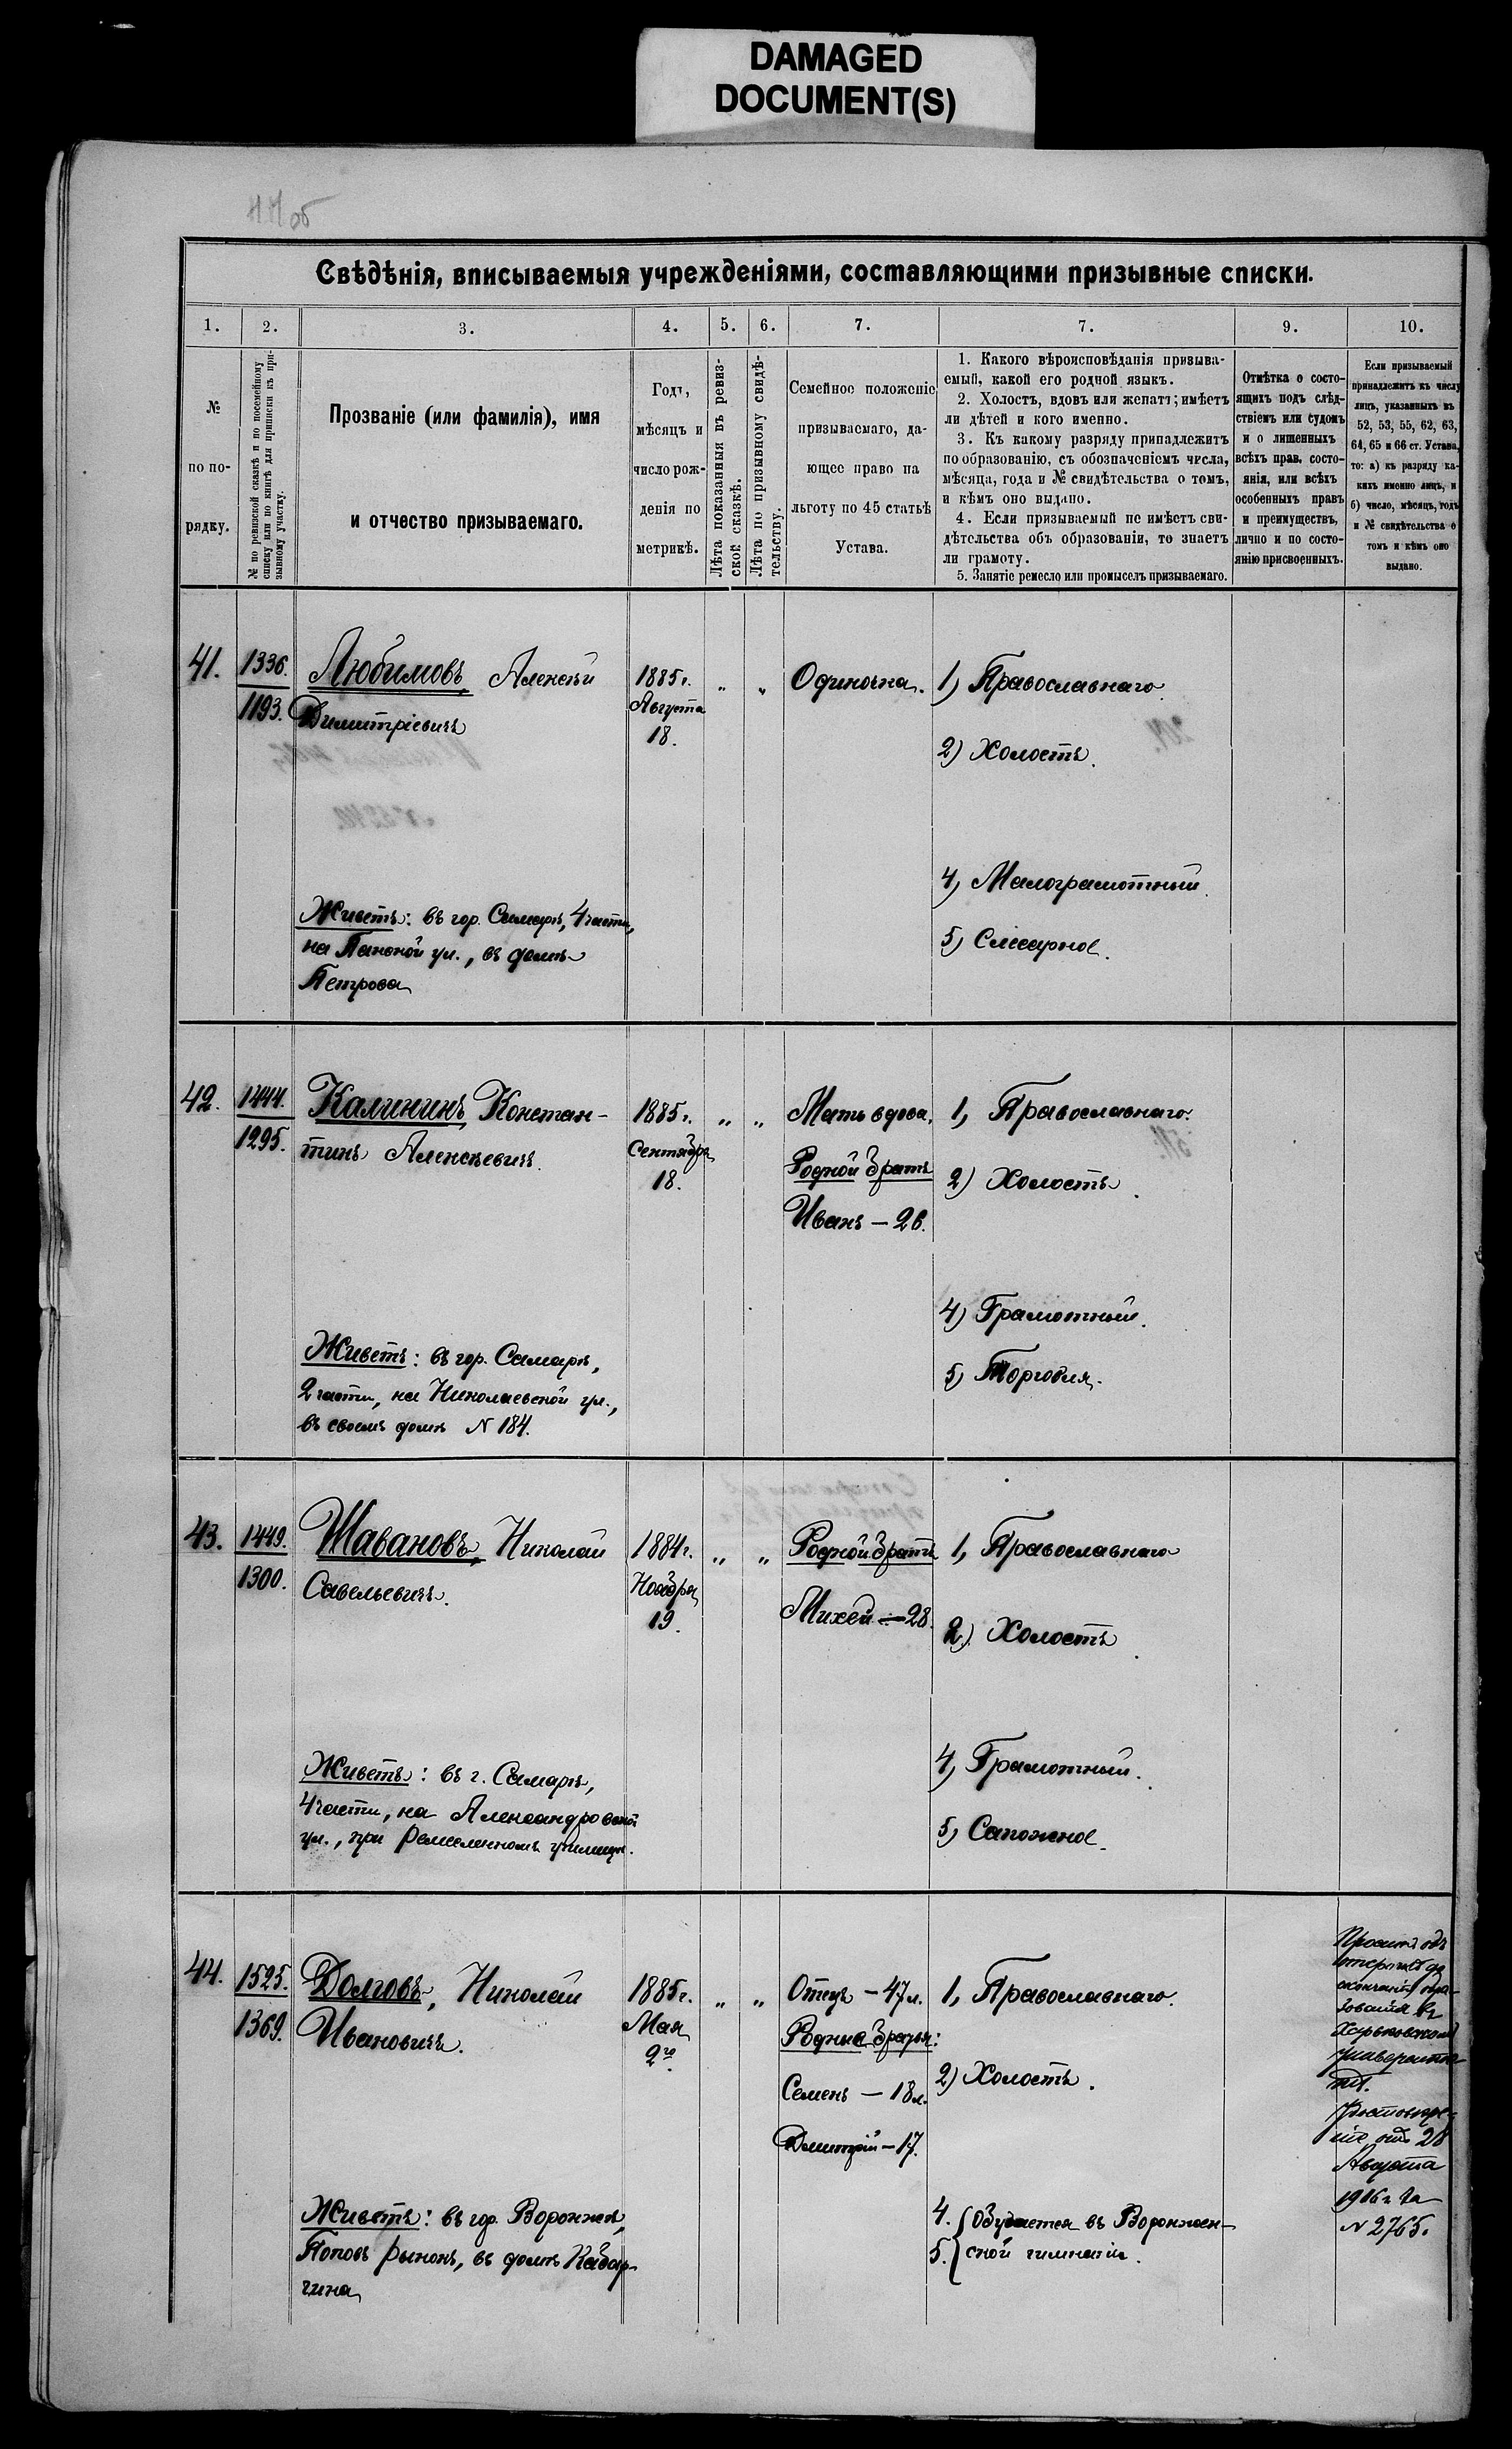 DAMAGED
DOCUMENT(S)
Свѣдѣнія, вписываемыя учрежденіями, составляющими призывные списки.
1. 2. 3. 4. 5. 6. 7. 7. 9. 10.
№
по по-
рядку.
№ по ревизской сказкѣ и по посемейному
списку или по книгѣ для приписки къ при-
зывному участку.
Прозваніе (или фамилія), имя
и отчество призываемаго.
Годъ,
мѣсяцъ и
число рож-
денія по
метрикѣ.
Лѣта показанныя въ ревиз-
ской сказкѣ.
Лѣта по призывному свидѣ-
тельству.
Семейное положеніе
призываемаго, да-
ющее право на
льготу по 45 статьѣ
Устава.
1. Какого вѣроисповѣданія призыва-
емый, какой его родной языкъ.
2. Холостъ, вдовъ или женатъ; имѣетъ
ли дѣтей и кого именно.
3. Къ какому разряду принадлежитъ
по образованію, съ обозначеніемъ числа,
мѣсяца, года и № свидѣтельства о томъ,
и кѣмъ оно выдано.
4. Если призываемый не имѣетъ сви-
дѣтельства объ образованіи, то знаетъ
ли грамоту.
5. Занятіе ремесло или промыселъ призываемаго.
Отмѣтка о состо-
ящихъ подъ слѣд-
ствіемъ или судомъ
и о лишенныхъ
всѣхъ прав. состо-
янія, или всѣхъ
особенныхъ правъ
и преимуществъ,
лично и по состо-
янію присвоенныхъ.
Если призываемый
принадлежитъ къ числу
лицъ, указанныхъ въ
52, 53, 55, 62, 63,
64, 65 и 66 ст. Устава,
то: а) къ разряду ка-
кихъ именно лицъ, и
б) число, мѣсяцъ, годъ
и № свидѣтельства о
томъ и кѣмъ оно
выдано.
41.
1336.
1193.
Любимовъ, Алексѣй
Димитріевичъ
Живетъ: въ гор. Самарѣ, 4 части,
на Панской ул., въ домѣ
Петрова
1885 г.
Августа
18.
" "
Одиночка.
1) Православнаго
2) Холостъ.
4) Малограмотный.
5) Слесарное.
42.
1444.
1295.
Калининъ, Констан-
тинъ Алексѣевичъ.
Живетъ: въ гор. Самарѣ,
2 части, на Николаевской ул.,
въ своемъ домѣ N 184.
1885 г.
Сентября
18.
" "
Мать вдова.
Родной братъ
Иванъ – 26.
1) Православнаго.
2) Холостъ.
4) Грамотный.
5) Торговля.
43.
1449.
1300.
Шавановъ, Николай
Савельевичъ.
Живетъ: въ г. Самарѣ,
4 части, на Александровской
ул., при Ремесленномъ училищѣ.
1884 г.
Ноября
19.
" "
Родной братъ
Михей – 28.
1) Православнаго
2) Холостъ.
4) Грамотный.
5) Сапожное.
44.
1525.
1369.
Долговъ, Николай
Ивановичъ.
Живетъ: въ гор. Воронежѣ,
Поповъ рынокъ, въ домѣ Кабар-
гина
1885 г.
Мая
2го.
" "
Отецъ – 47 л.
Родные братья:
Семенъ – 18 л.
Дмитрій – 17.
1) Православнаго.
2) Холостъ.
4. Обучается въ Воронежен-
5. ской гимназіи.
Проситъ объ
отсрочкѣ до
окончанія обра-
зованія въ
Харьковскомъ
университе-
тѣ.
28
Августа
1906 г. за
N 2765.